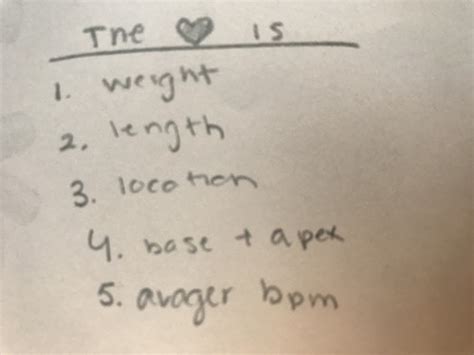 The ♥ is
1. weight
2. length
3. location
4. base + apex
5. avager bpm